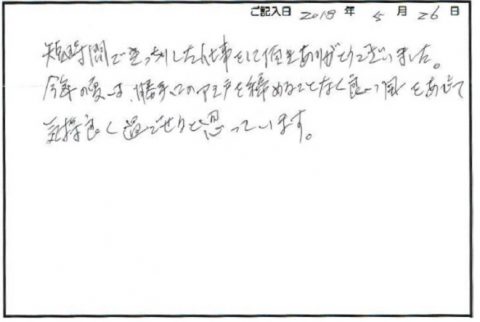 ご記入日 2018 年 5 月 26 日
短時間できっちりした仕事をして頂きありがとうございました。
今年の夏は、勝手口のアミ戸を締めることなく良い風をあびて
気持良く過ごせりと思っています。